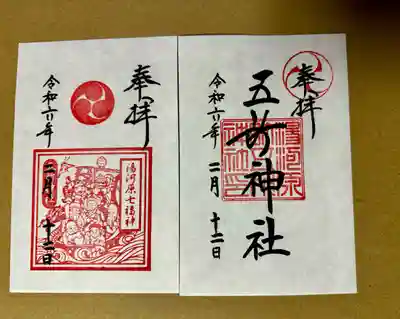 奉拝
五所神社
令和六年 二月 十二日
湯河原五所神社印
奉拝
令和六年
二月 十二日
湯河原七福神